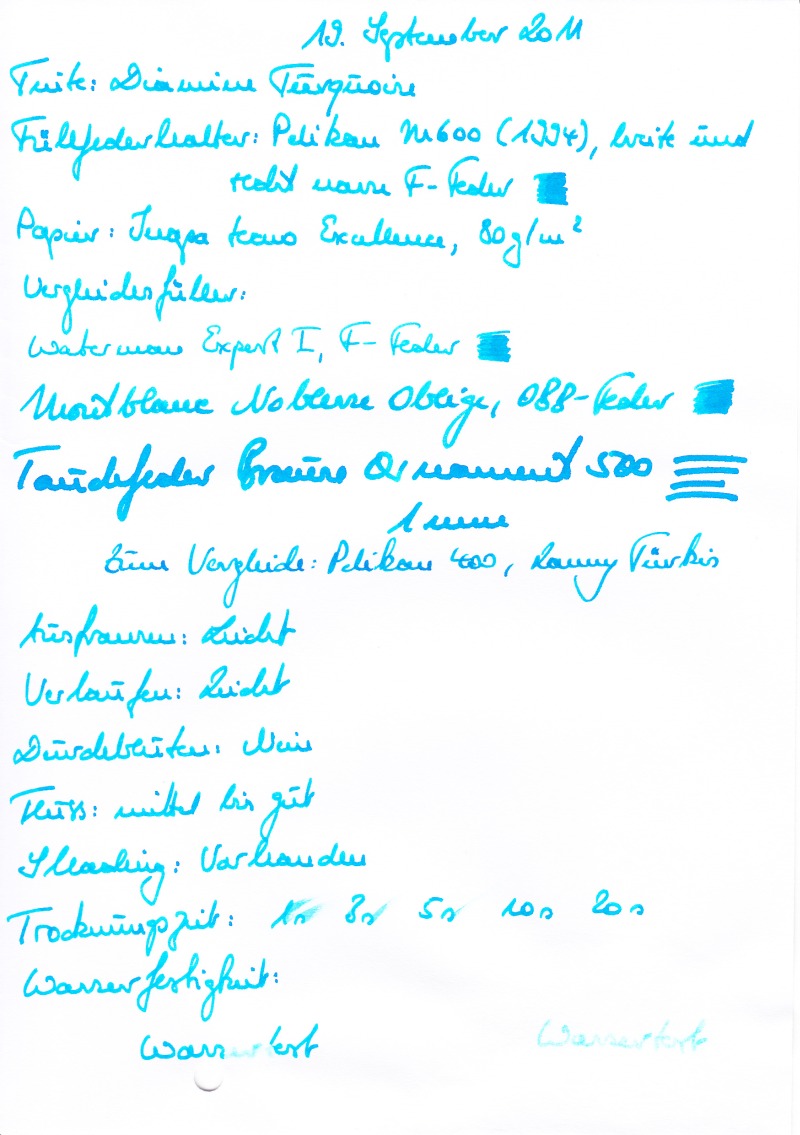 19. September 2011
Tinte: Diamine Turquoise
Füllfederhalter: Pelikan M600 (1994), breite und
recht nasse F-Feder
Papier: Inapa tecno Excellence, 80g/m²
Vergleichsfüller:
Waterman Expert I, F-Feder
Montblanc Noblesse Oblige, OBB-Feder
Tauchfeder Brause Ornament 500
1 mm
Zum Vergleich: Pelikan 400, Lamy Türkis
Ausfransen: Leicht
Verlaufen: Leicht
Durchbluten: Nein
Fluss: mittel bis gut
Shading: Vorhanden
Trocknungszeit: 1s 3s 5s 10s 20s
Wasserfestigkeit:
Wassertest Wassertest